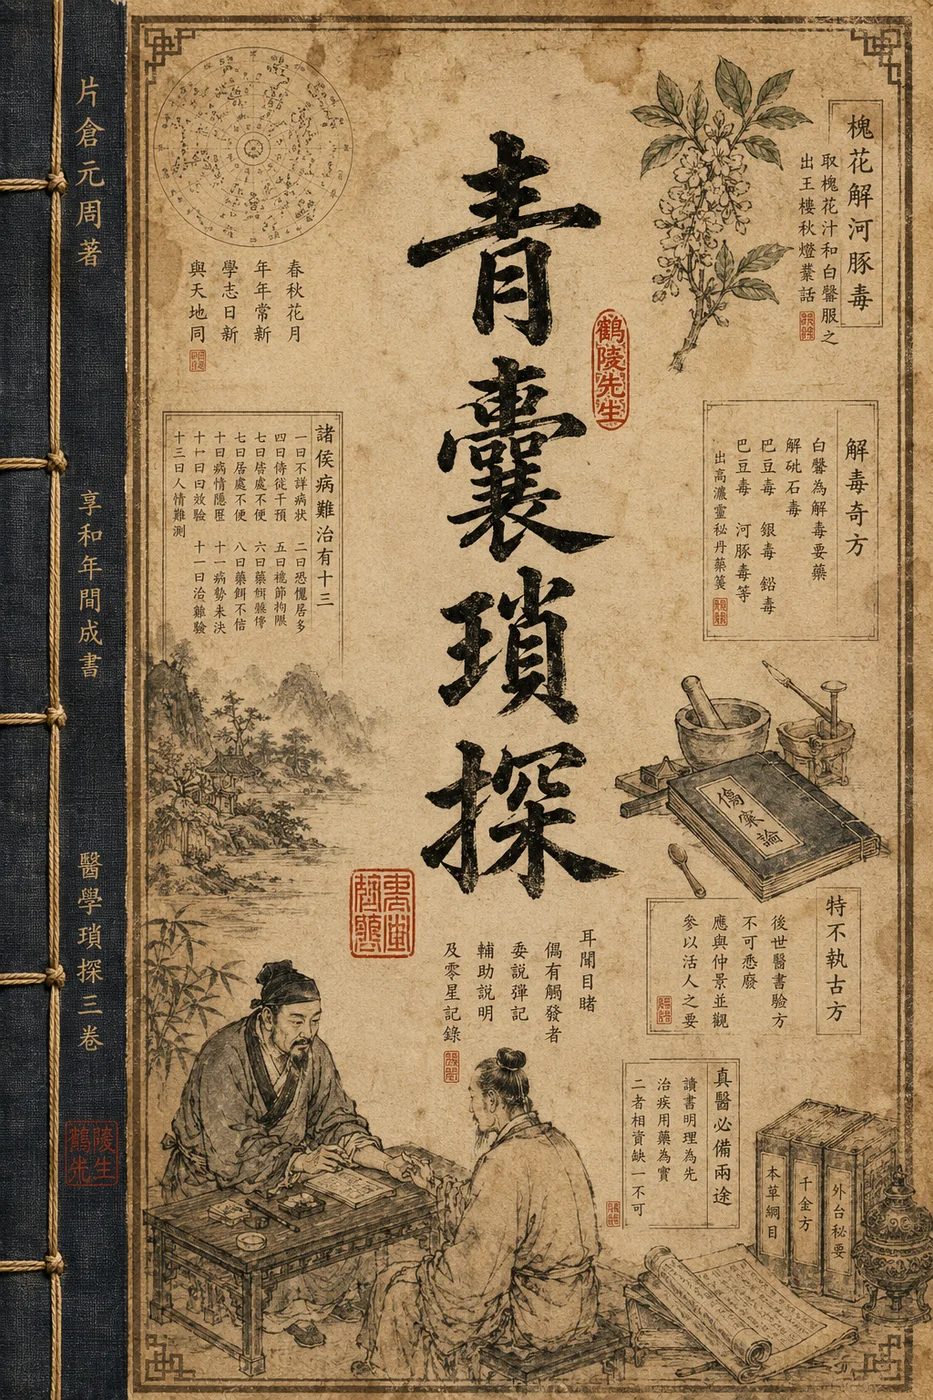 青囊瑣探
鶴陵先生
片倉元周著
享和年間成書
醫學瑣探三卷
鶴陵先生
槐花解河豚毒
取槐花汁和白礬服之
出王樓秋燈叢話
春秋花月
年年常新
學志日新
與天地同
諸侯病難治有十三
一曰不詳病狀 二曰恐懼居多
四曰侍従干預 五曰禮節拘限
七曰居處不便 六曰藥餌
七曰居處不便 八曰藥餌不信
十曰病情隱匿 十一病勢未決
十一曰曰效驗 十一曰治難驗
十三曰人情難測
解毒奇方
白礬為解毒要藥
解砒石毒
巴豆毒 銀毒 鉛毒
巴豆毒 河豚毒等
出高濃靈秘丹藥箋
傷寒論
特不執古方
後世醫書驗方
不可悉廢
應與仲景並觀
參以活人之要
耳聞目睹
偶有觸發者
委説彈記
輔助説明
及零星記錄
真醫必備兩途
讀書明理為先
治疾用藥為實
二者相資缺一不可
本草綱目
千金方
外台秘要